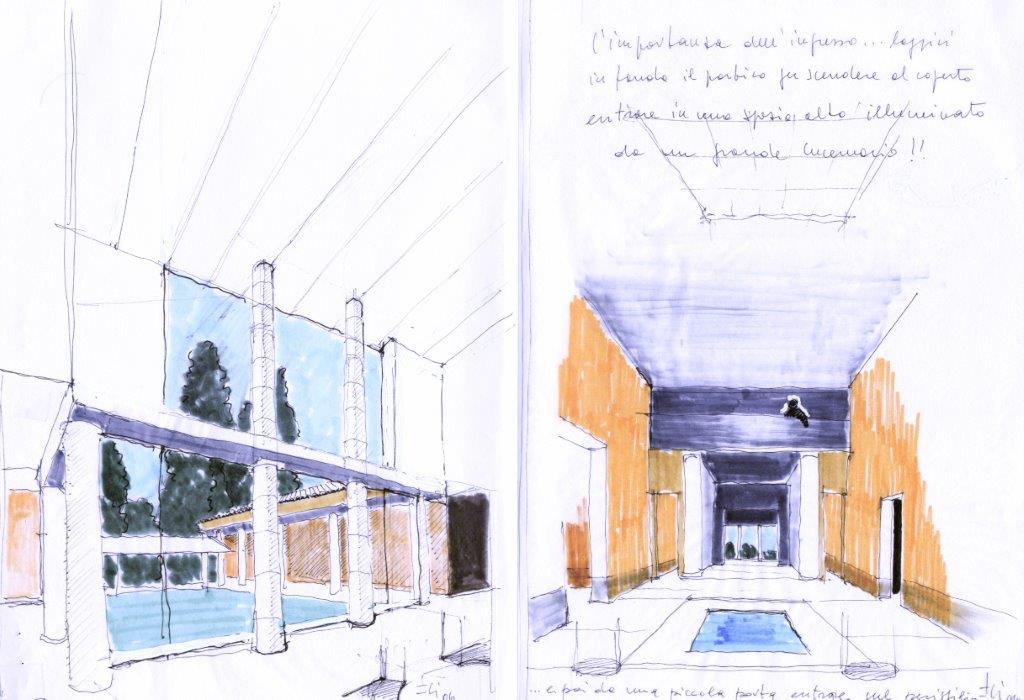 l'importanza dell'ingresso...
in fondo il portico per scendere al coperto
entrare in uno spazio alto illuminato
da un grande lucernario !!
... e poi da una piccola porta entrare nel peristilio